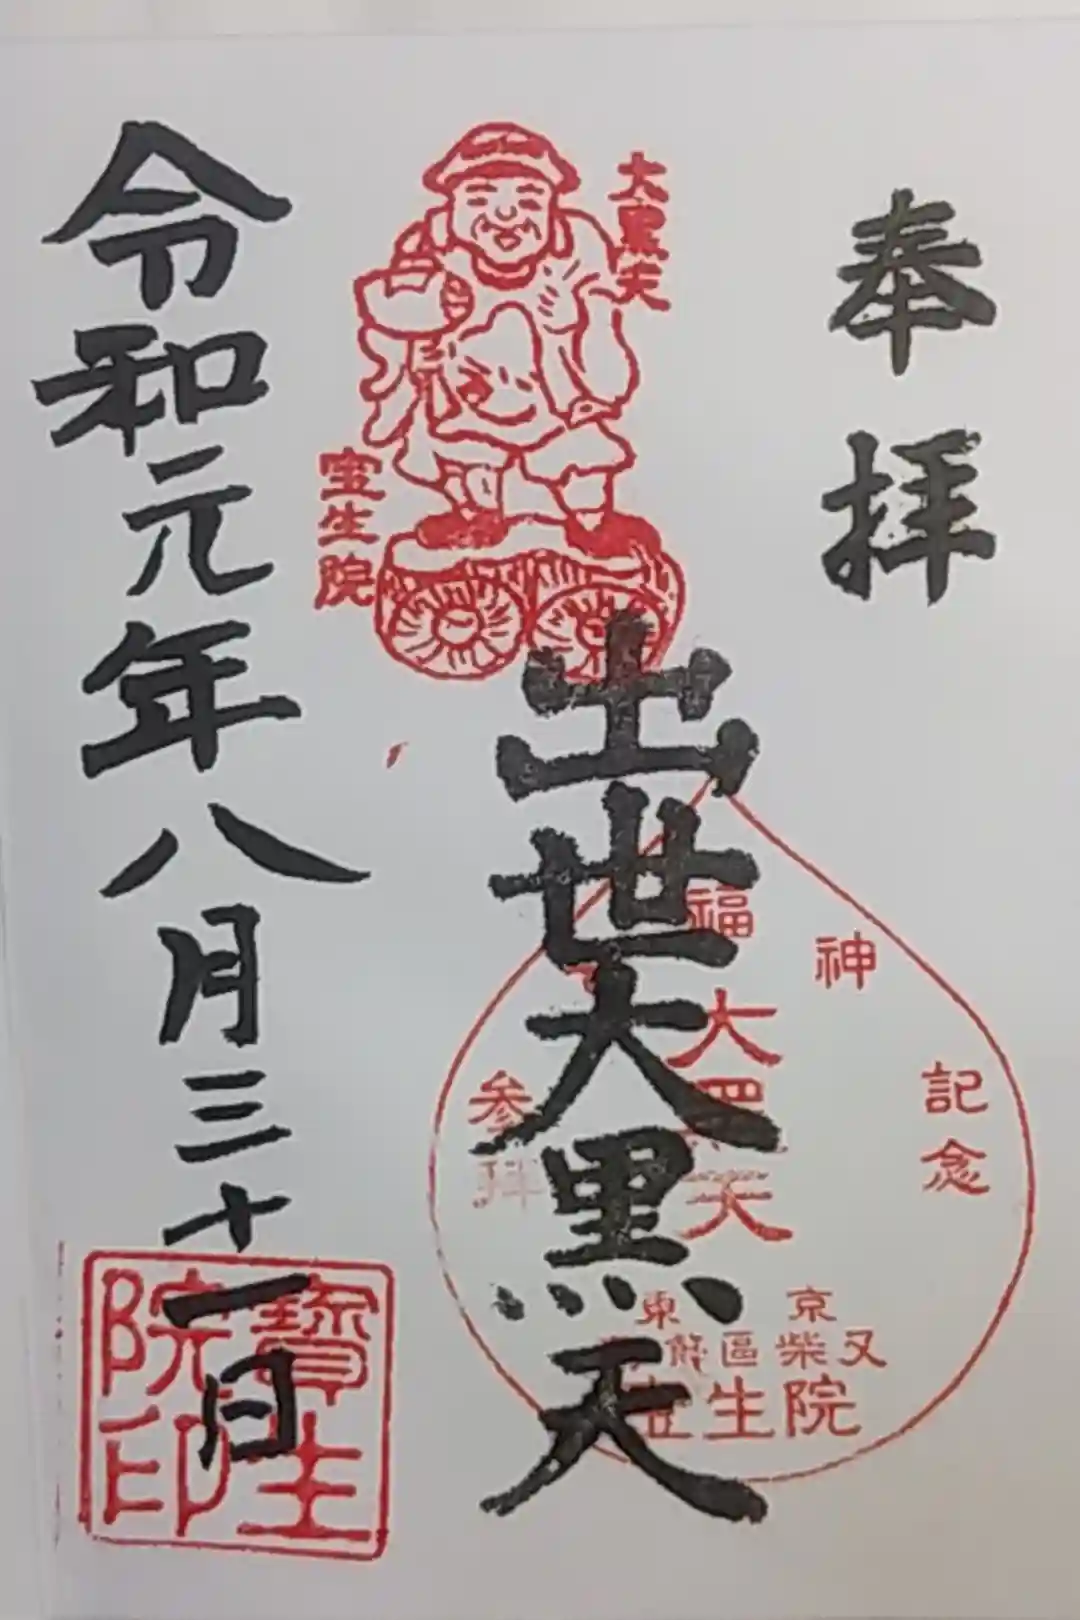 奉拝
大黒天
宝生院
出世大黒天
福神
大黒天
記念
参拝
東京
飾區柴又
宝生院
令和元年八月三十一日
寶生院印